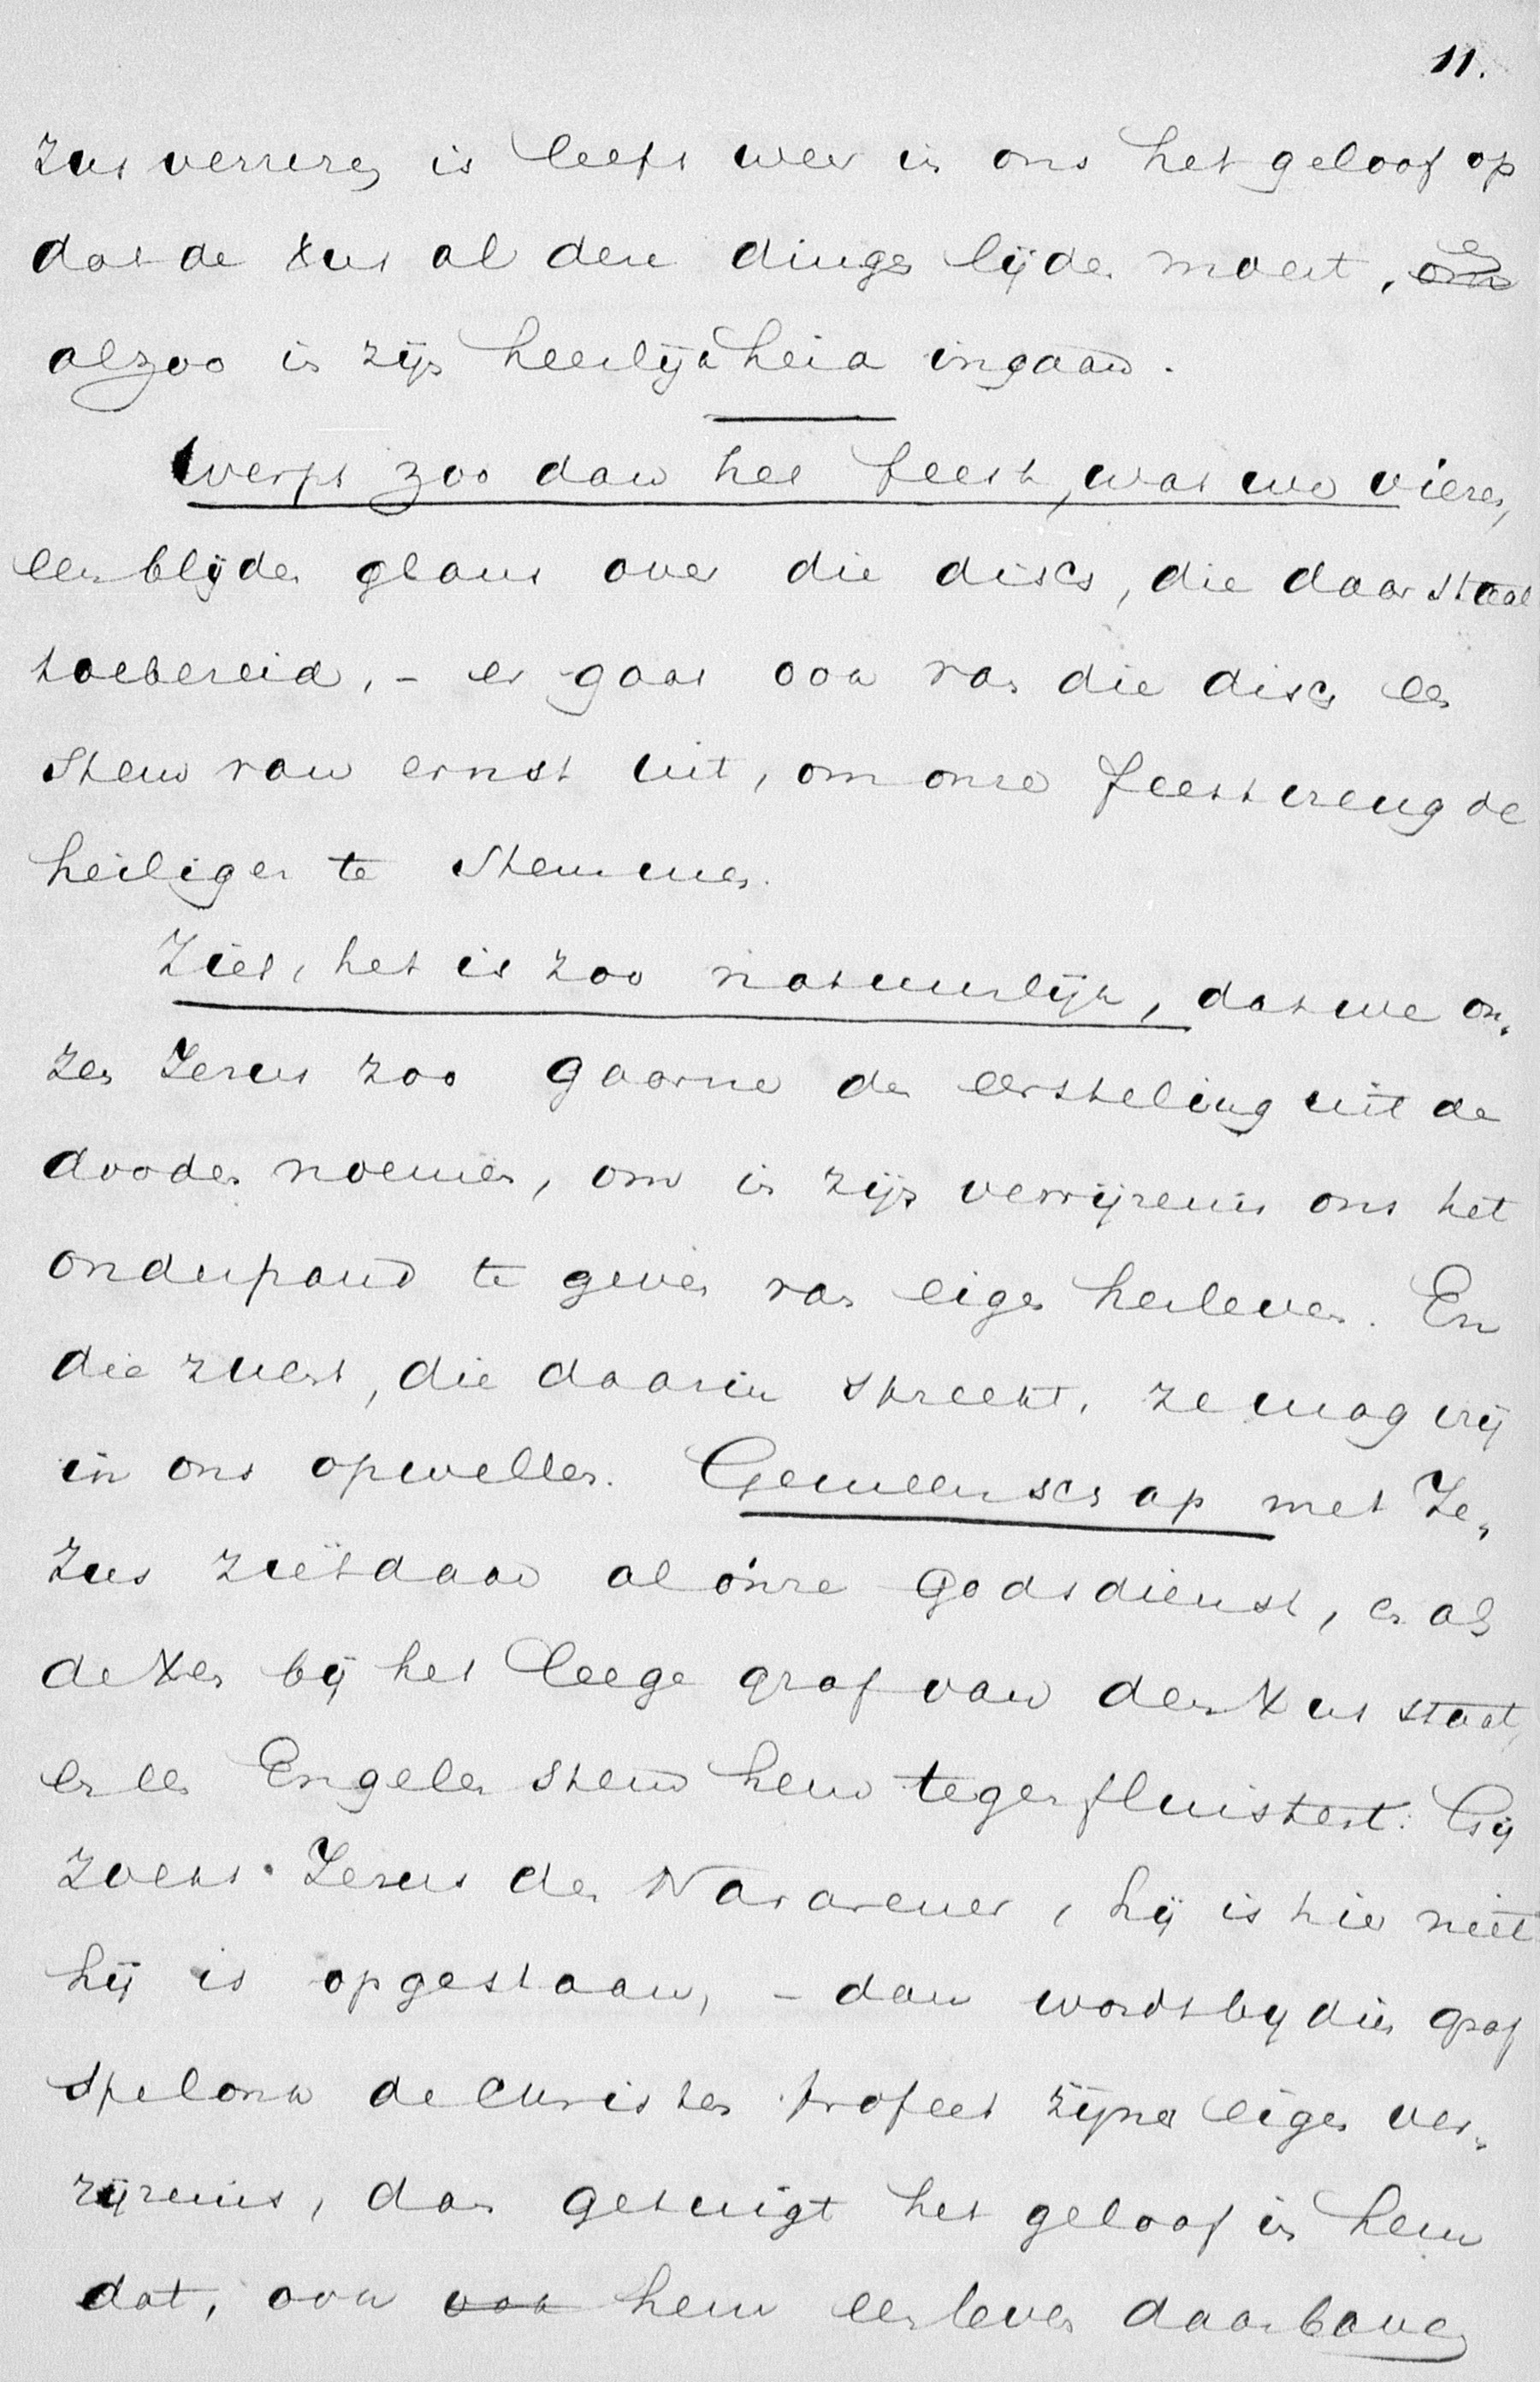 11.
zus verrezen is leeft weer in ons het geloof op
dat de Xus al deze dingen lijden moest, ~~om~~ en
alzoo in zijn heerlijkheid ingaan.
Werpt zoo dan het feest, wat we vieren,
een blijden glans over die disch, die daar staat
toebereid, - er gaat ook van die disch een
stem van ernst uit, om onze feestvreugde
heiliger te stemmen.
Ziet, het is zoo natuurlijk, dat we on-
zen Jezus zoo gaarne den eersteling uit de
dooden noemen, om in zijn verrijzenis ons het
onderpand te geven van eigen herleven. En
die zucht, die daarin spreekt, ze mag vrij
in ons opwellen. Gemeenschap met Je-
zus ziétdaar al ónze godsdienst, en als
de Xen bij het leege graf van den Xus staat,
en een Engelen stem hem tegenfluistert: Gij
zoekt Jezus den Nazarener, hij is hier niet
hij is opgestaan, - dan wordt bij die graf
spelonk de Christen profeet zijner eigen ver-
rijzenis, dan getuigt het geloof in hem
dat, ook ~~ook~~ hem een leven daarboven